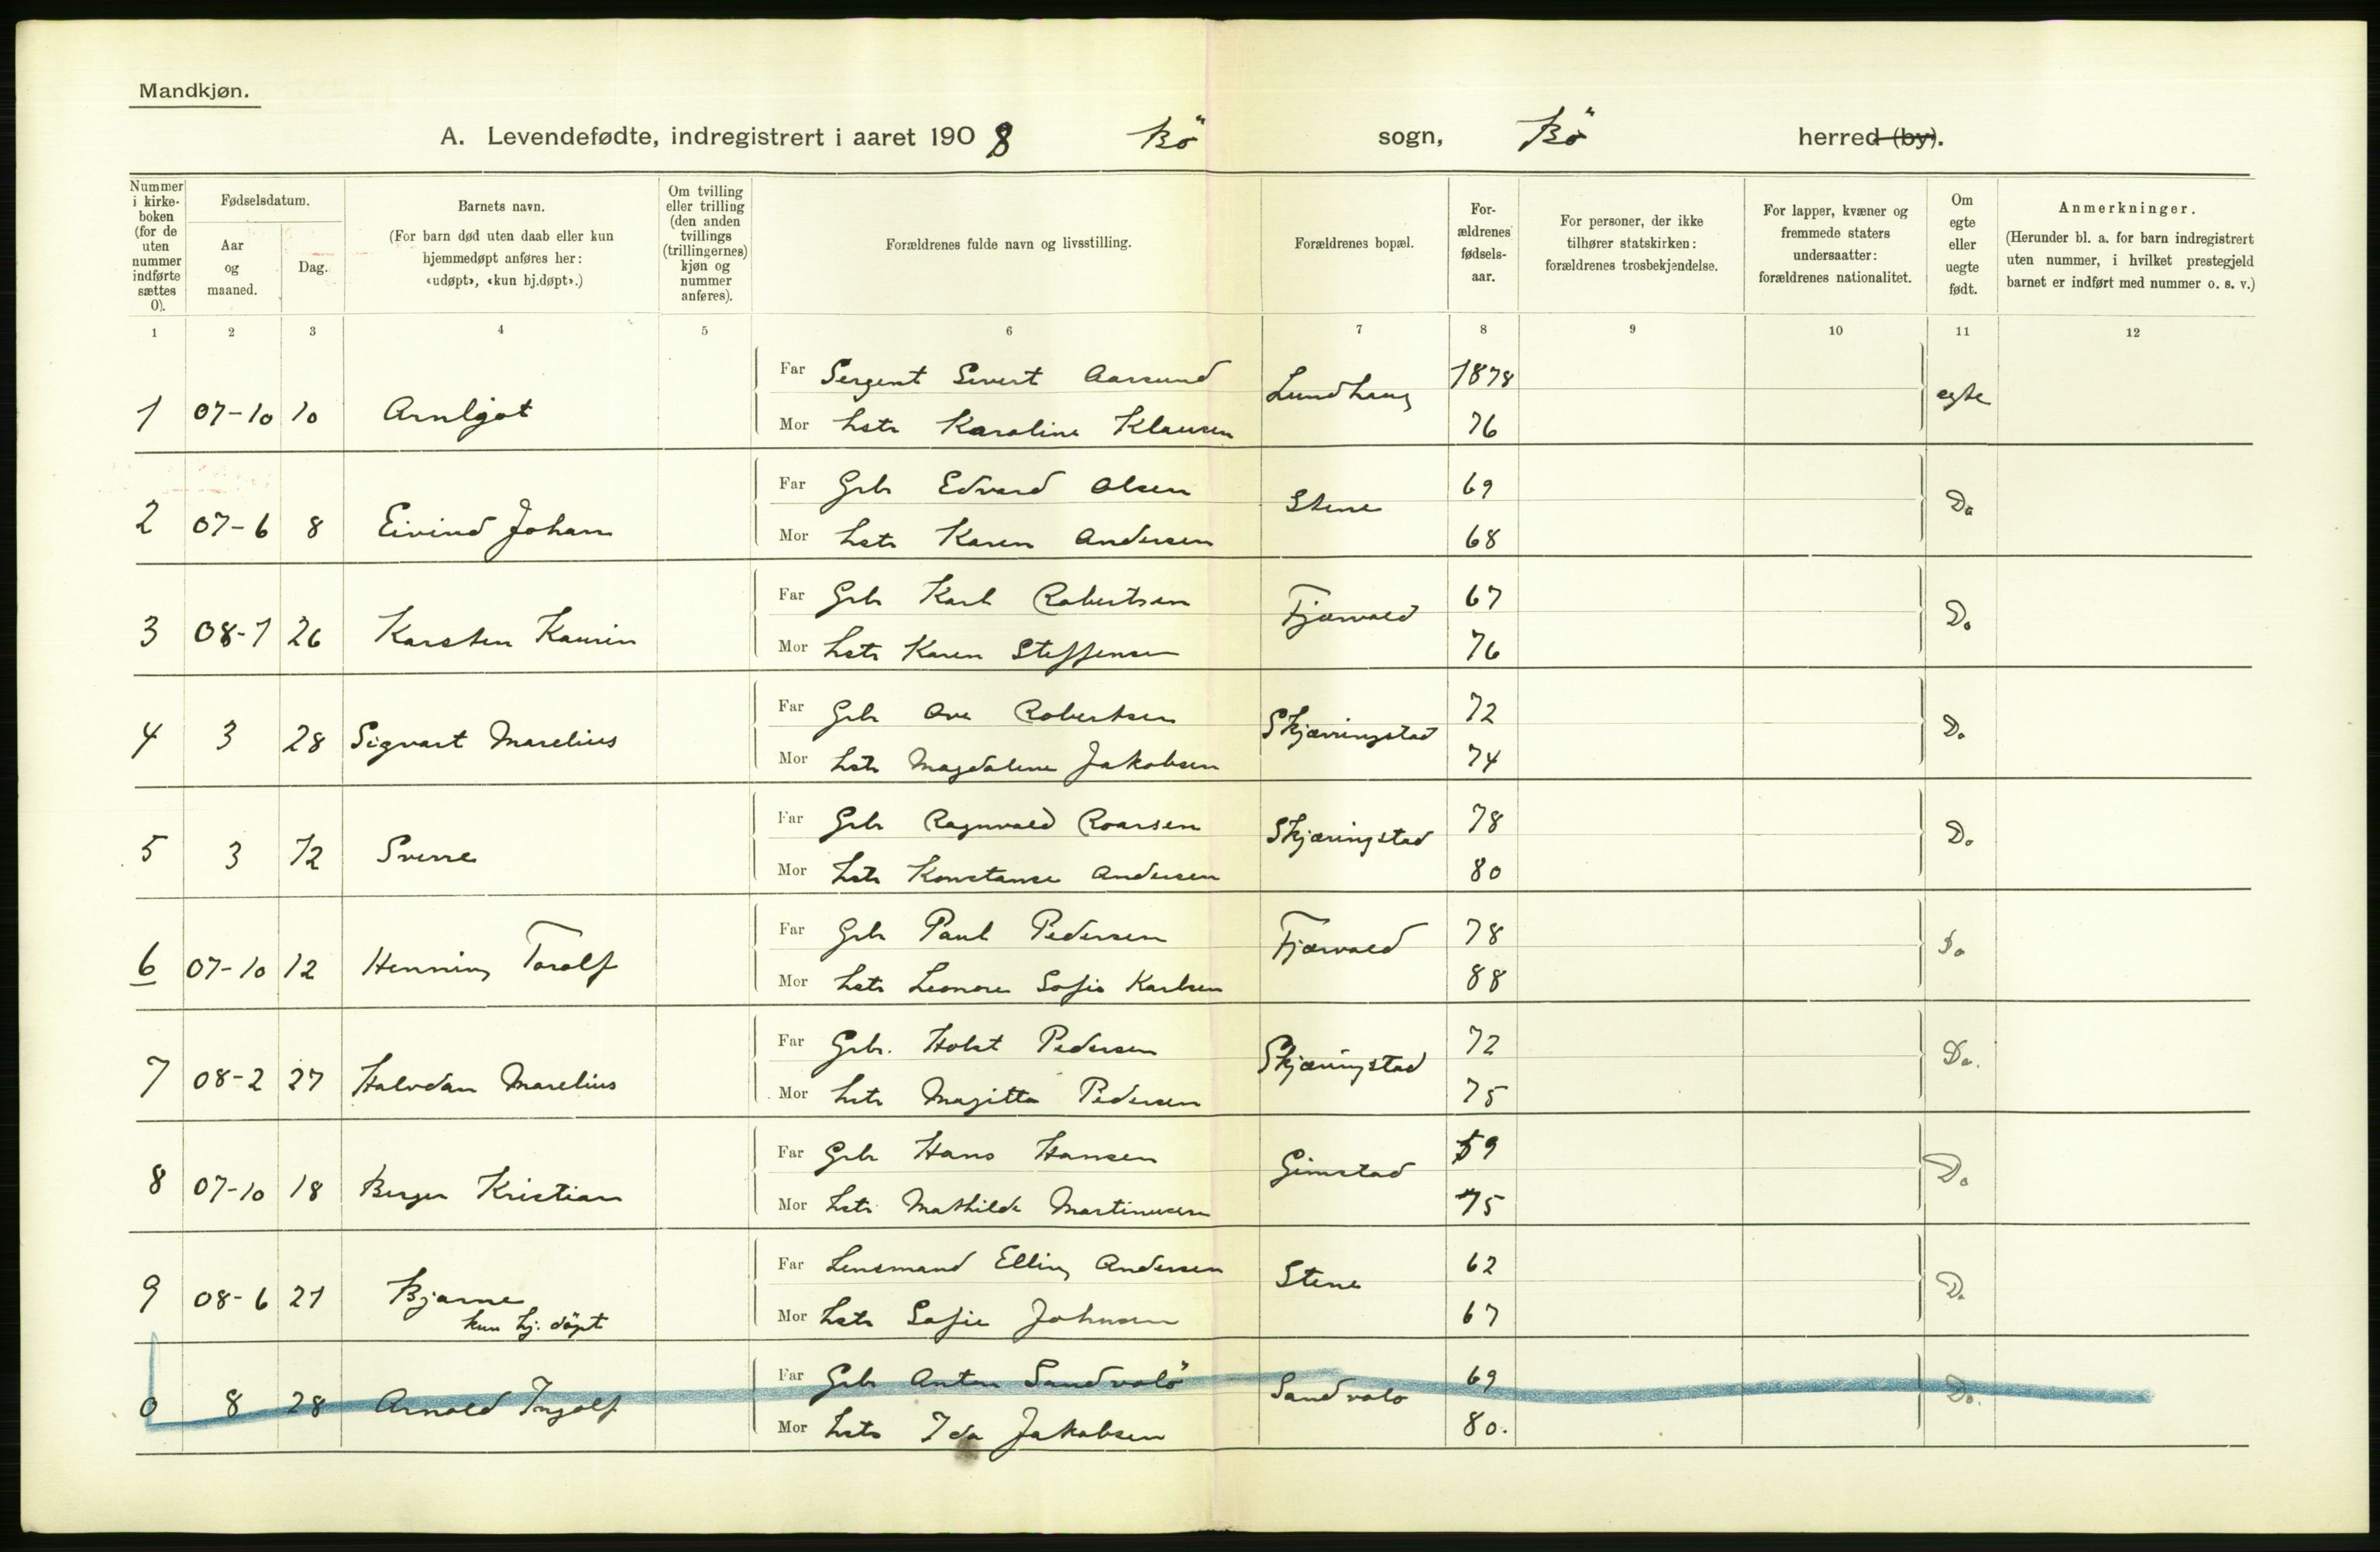 Mandkjøn.
A. Levendefødte, indregistrert i aaret 1908 Bö sogn, Bö herred (by).
Nummer i kirkeboken (for de uten nummer indførte sættes 0).
Fødselsdatum.
Aar og maaned.
Dag.
Barnets navn.
(For barn død uten daab eller kun hjemmedøpt anføres her: «udøpt», «kun hj.døpt».)
Om tvilling eller trilling (den anden tvillings (trillingernes) kjøn og nummer anføres).
Forældrenes fulde navn og livsstilling.
Forældrenes bopæl.
Forældrenes fødselsaar.
For personer, der ikke tilhører statskirken: forældrenes trosbekjendelse.
For lapper, kvæner og fremmede staters undersaatter: forældrenes nationalitet.
Om egte eller uegte født.
Anmerkninger.
(Herunder bl. a. for barn indregistrert uten nummer, i hvilket prestegjeld barnet er indført med nummer o. s. v.)
1 2 3 4 5 6 7 8 9 10 11 12
Far Sergent Sivert Aarsund Lundhaug 1878 egte
1 07-10 10 Arnljot
Mor hstr Karoline Klausen 76
Far Gbr Edvard Olsen Stene 69 Do
2 07-6 8 Eivind Johan
Mor hstr Karen Andersen 68
Far Gbr Karl Robertsen Fjærvold 67 Do
3 08-1 26 Karsten Kaurin
Mor hstr Karen Steffensen 76
Far Gbr Ove Robertsen Skjærringstad 72 Do
4 3 28 Sigvart Marelius
Mor hstr Magdalene Jakobsen 74
Far Gbr Ragnvald Roarsen Skjæringstad 78 Do
5 3 12 Sverre
Mor hstr Konstanse Andersen 80
Far Gbr Paul Pedersen Fjærvold 78 Do
6 07-10 12 Henning Toralf
Mor hstr Leonore Sofie Karlsen 88
Far Gbr. Holst Pedersen Skjæringstad 72 Do.
7 08-2 27 Halvdan Marelius
Mor hstr Magitta Pedersen 75
Far Gbr Hans Hansen Gimstad 59 Do
8 07-10 18 Berger Kristian
Mor hstr Mathilde Martinusen 75
Far Lensmand Elling Andersen Stene 62 Do
9 08-6 21 Bjarne
kun hj. döpt
Mor hstr Sofie Johnsen 67
Far Gbr Anton Sandvolö Sandvolo 69 Do.
0 8 28 Arnold Ingolf
Mor hstr Ida Jakobsen 80.